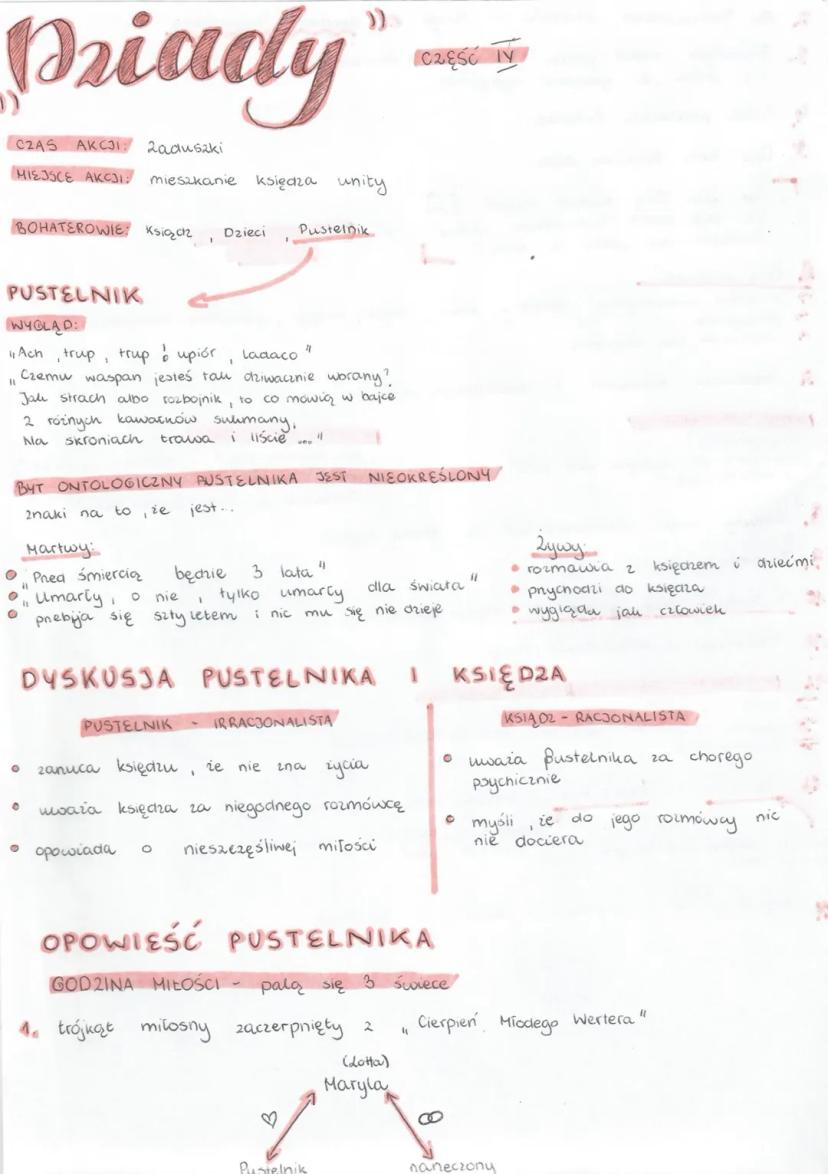 "Dziady"
CZĘŚĆ IV
CZAS AKCJI: Zaduszki
MIEJSCE AKCJI: mieszkanie księdza unity
BOHATEROWIE: Ksiądz, Dzieci, Pustelnik
PUSTELNIK
WYGLĄD:
„Ach, trup, trup! upiór, ladaco"
„Czemu waspan jesteś tak dziwacznie ubrany?
Jak strach albo rozbójnik, to co mówią w bajce
z różnych kawałków sukmany,
Na skroniach trawa i liście ..."
BYT ONTOLOGICZNY PUSTELNIKA JEST NIEOKREŚLONY
znaki na to, że jest...
Martwy:
• „Przed śmiercią będzie 3 lata"
• „Umarły, o nie, tylko umarły dla świata"
• przebija się sztyletem i nic mu się nie dzieje
Żywy:
• rozmawia z księdzem i dziećmi
• przychodzi do księdza
• wygląda jak człowiek
DYSKUSJA PUSTELNIKA I KSIĘDZA
PUSTELNIK - IRRACJONALISTA
• zarzuca księdzu, że nie zna życia
• uważa księdza za niegodnego rozmówcę
• opowiada o nieszczęśliwej miłości
KSIĄDZ - RACJONALISTA
• uważa Pustelnika za chorego
psychicznie
• myśli, że do jego rozmówcy nic
nie dociera
OPOWIEŚĆ PUSTELNIKA
GODZINA MIŁOŚCI - palą się 3 świece
1. trójkąt miłosny zaczerpnięty z „Cierpień Młodego Wertera"
(Lotta)
Maryla
Pustelnik narzeczony